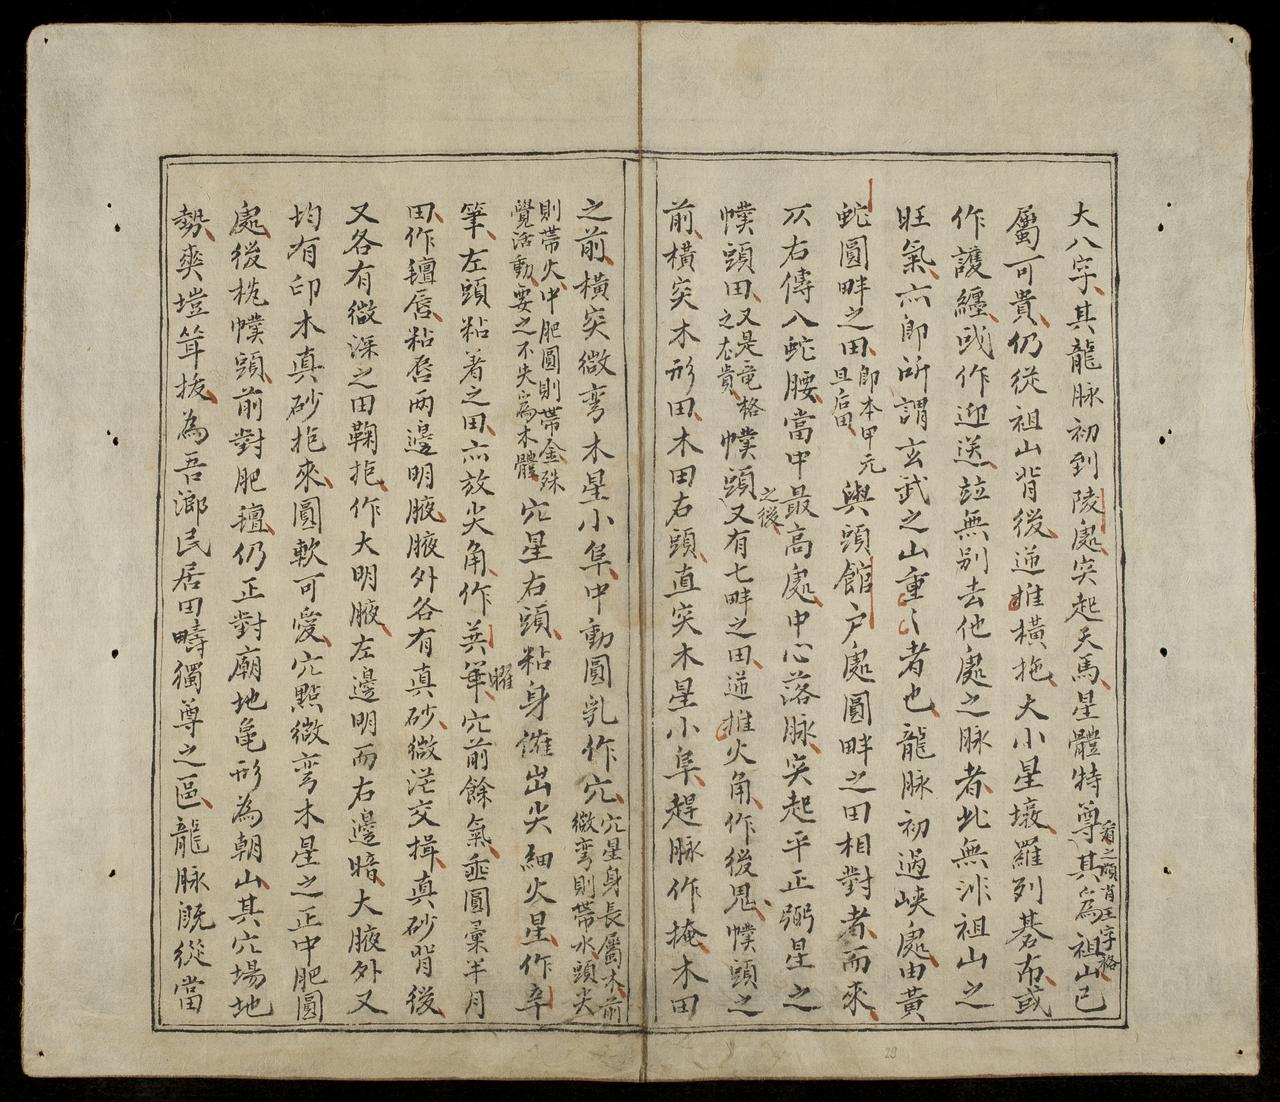 大八字其龍脉初到陵處突起天馬星體特尊其為祖山已
看之頗肖王字格
屬可貴仍從祖山背後逆推橫拖大小星墩羅列碁布或
作護纏或作迎送竝無別去他處之脉者此無非祖山之
旺氣亦即所謂玄武之山重〻者也龍脉初過峽處由黃
蛇圓畔之田
即本甲元
且后田
輿頭館户處圓畔之田相對者而來
㐲右傳八蛇腰當中最高處中心落脉突起平正弼星之
之後
幞頭田
又是竜格
之尤貴
幞頭又有七畔之田逆推火角作後鬼幞頭之
前橫突木形田木田右頭直突木星小阜趕脉作掩木田
之前橫突微弯木星小阜中動圓乳作穴
穴星身長屬木前
微弯則帶水頭尖
則帶火中肥圓則帶金殊
覺活動要之不失為木體
穴星右頭粘身㨿出尖細火星作卒
筆左頭粘著之田亦放尖角作英筆
曜
穴前餘氣垂圓彙半月
田作䄠唇粘唇两邊明腋腋外各有真砂微茫交揖真砂背後
又各有微深之田鞠拒作大明腋左邊明而右邊暗大腋外又
均有印木真砂拒來圓軟可愛穴點微弯木星之正中肥圓
處後枕幞頭前對肥䄠仍正對廟地龟形為朝山其穴塲地
勢爽塏耸拔為吾鄉民居田疇獨尊之區龍脉既從當
29